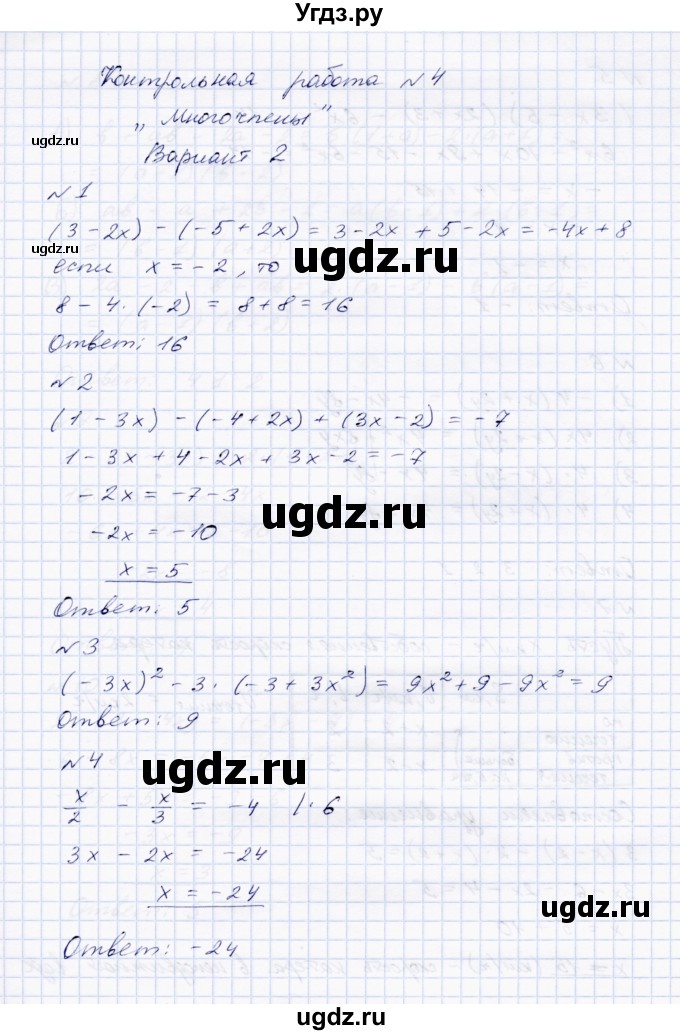 Угдз.ру
Контрольная работа №4
„Многочлены"
Вариант 2
ugdz.ru
№1
(3 - 2x) - (-5 + 2x) = 3 - 2x + 5 - 2x = -4x + 8
ugdz.ru
если x = -2, то
ugdz.ru
8 - 4 · (-2) = 8 + 8 = 16
Ответ: 16
№2
(1 - 3x) - (-4 + 2x) + (3x - 2) = -7
1 - 3x + 4 - 2x + 3x - 2 = -7
-2x = -7 - 3
ugdz.ru
-2x = -10
x = 5
Ответ: 5
№3
(-3x)² - 3 · (-3 + 3x²) = 9x² + 9 - 9x² = 9
Ответ: 9
№4
ugdz.ru
x/2 - x/3 = -4 |·6
3x - 2x = -24
x = -24
ugdz.ru
Ответ: -24
ugdz.ru